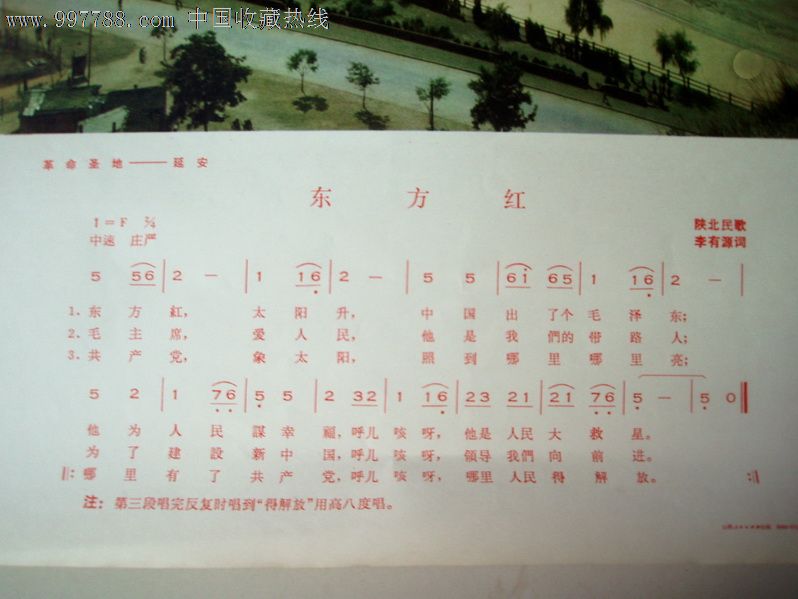 www.997788.com 中国收藏热线
革命圣地——延安
东方红
1=F 2/4
陕北民歌
中速 庄严
李有源词
5 56 | 2 — | 1 16 | 2 — | 5 5 | 61 65 | 1 16 | 2 — |
1、东方紅， 太阳升， 中国出了个毛泽东；
2、毛主席， 爱人民， 他是我們的带路人；
3、共产党， 象太阳， 照到哪里哪里亮；
5 2 | 1 76 | 5 5 | 2 32 | 1 16 | 23 21 | 21 76 | 5 — | 5 0 ‖
他为人民謀幸福，呼儿咳呀，他是人民大救星。
为了建設新中国，呼儿咳呀，领导我們向前进。
‖:哪里有了共产党，呼儿咳呀，哪里人民得解放。:‖
注：第三段唱完反复时唱到“得解放”用高八度唱。